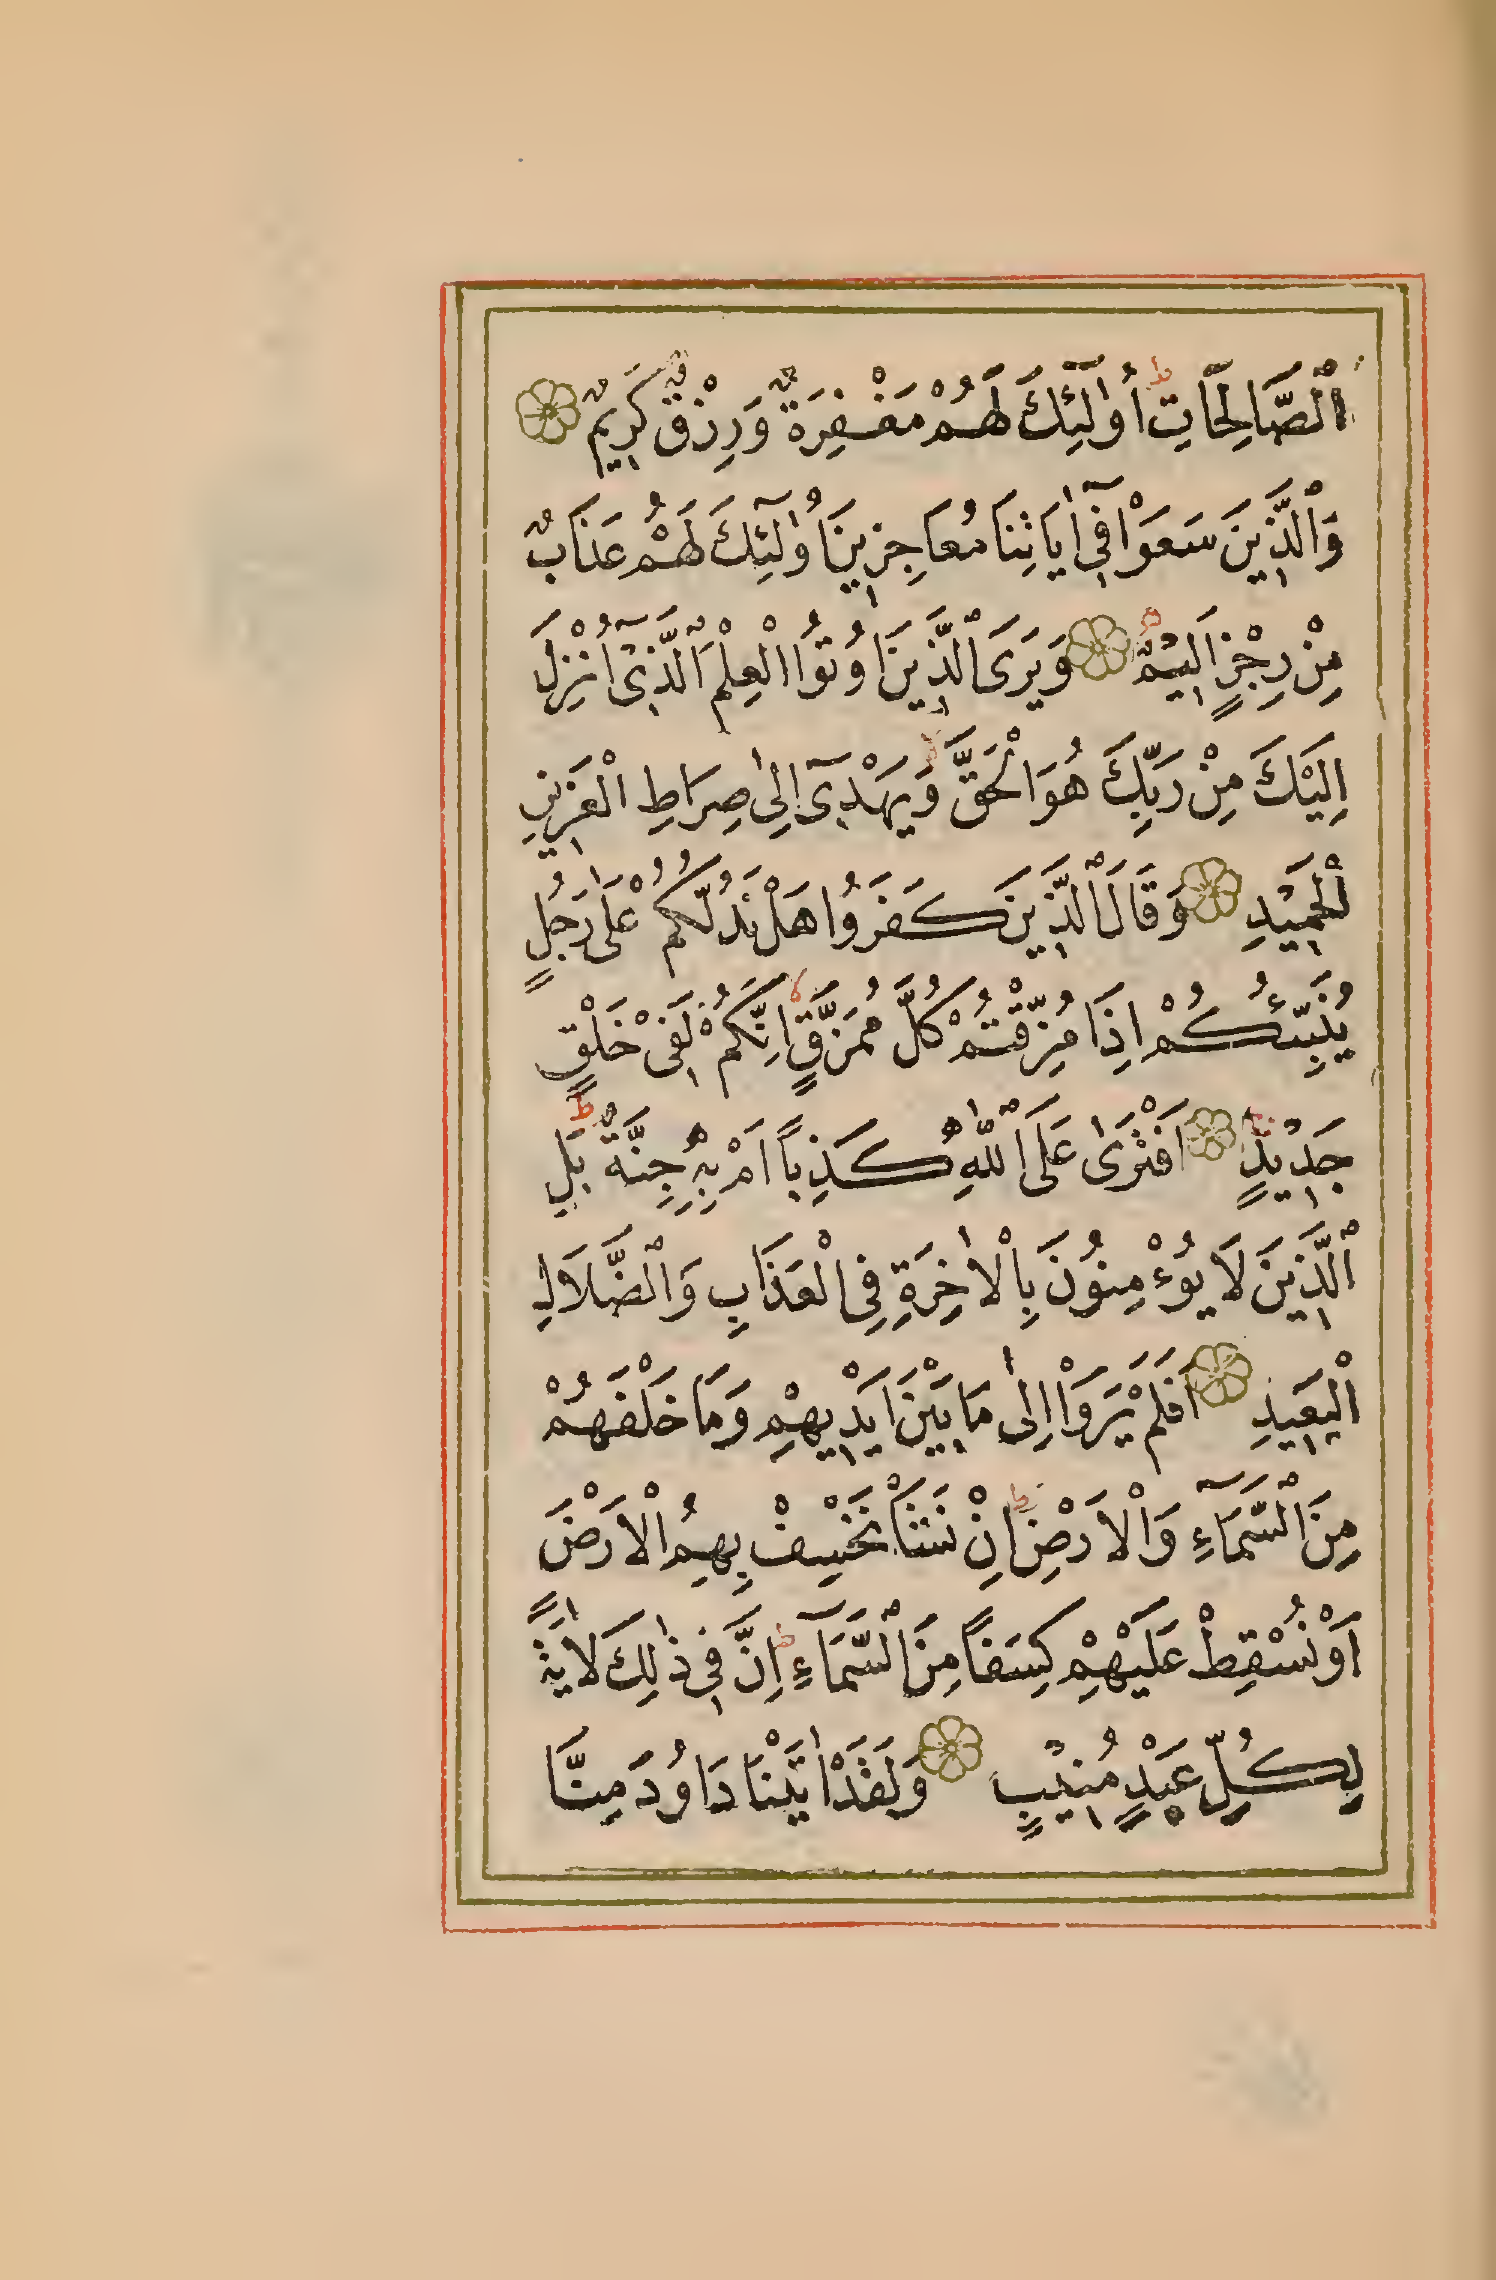 ٱلصَّالِحَاتِ ط أُولٰٓئِكَ لَهُمْ مَغْفِرَةٌ وَرِزْقٌ كَرِيمٌ
وَٱلَّذِينَ سَعَوْا فِيٓ اٰيَاتِنَا مُعَاجِزِينَ اُولٰٓئِكَ لَهُمْ عَذَابٌ
مِنْ رِجْزٍ اَلِيمٌ وَيَرَى ٱلَّذِينَ اُوتُوا الْعِلْمَ ٱلَّذِىٓ اُنْزِلَ
اِلَيْكَ مِنْ رَبِّكَ هُوَ الْحَقَّ وَيَهْدِىٓ اِلٰى صِرَاطِ الْعَزِيزِ
ٱلْحَمِيْدِ وَقَالَ ٱلَّذِينَ كَفَرُوا هَلْ نَدُلُّكُمْ عَلٰى رَجُلٍ
يُنَبِّئُكُمْ اِذَا مُزِّقْتُمْ كُلَّ مُمَزَّقٍ اِنَّكُمْ لَفِىْ خَلْقٍ
جَدِيْدٍ اَفْتَرٰى عَلَى ٱللّٰهِ كَذِبًا اَمْ بِهٖ جِنَّةٌ ط بَلِ
ٱلَّذِينَ لَا يُوْءْمِنُونَ بِالْاٰخِرَةِ فِى الْعَذَابِ وَٱلضَّلَالِ
الْبَعِيدِ اَفَلَمْ يَرَوْا اِلٰى مَا بَيْنَ اَيْدِيهِمْ وَمَا خَلْفَهُمْ
مِنَ ٱلسَّمَآءِ وَالْاَرْضِ ط اِنْ نَشَأْ نَخْسِفْ بِهِمُ الْاَرْضَ
اَوْ نُسْقِطْ عَلَيْهِمْ كِسَفًا مِنَ ٱلسَّمَآءِ ط اِنَّ فِى ذٰلِكَ لَاٰيَةً
لِكُلِّ عَبْدٍ مُنِيْبٍ وَلَقَدْ اٰتَيْنَا دَاوُدَ مِنَّا